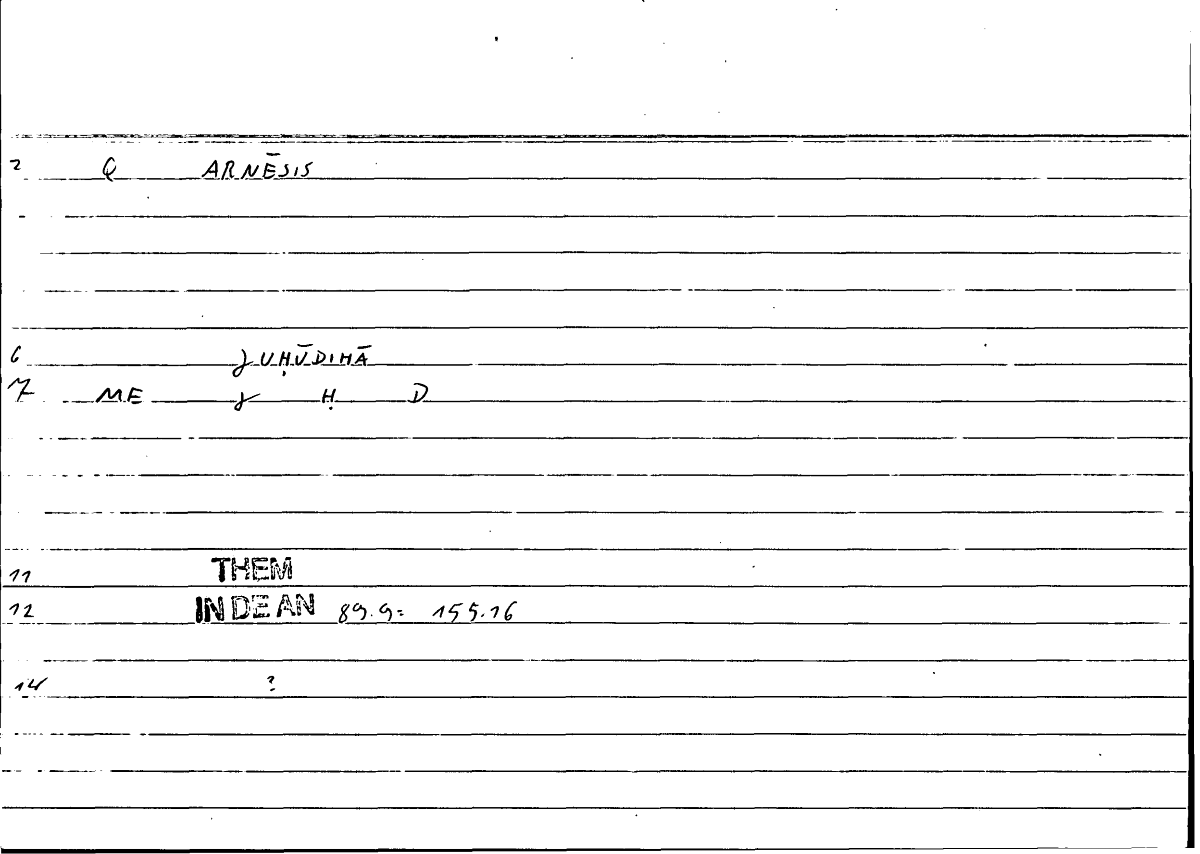 2 Q ARNĒSIS
6 ƷUḤŪDIHĀ
7 ME Ʒ Ḥ D
11 THEM
12 IN DE AN 89.9= 155.16
14 ?